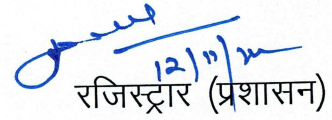 12/11/
रजिस्ट्रार (प्रशासन)